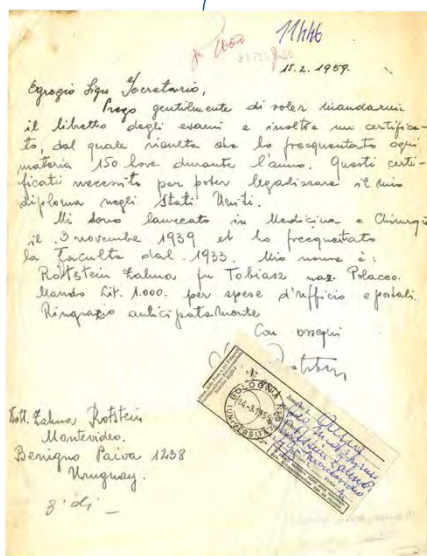 11446
1000
15.2.1959.
Egregio Sign. Secretario,
Prego gentilmente di voler mandarmi
il libretto degli esami e inoltre un certifica-
to, dal quale risulta che ho frequentato ogni
materia 150 hore durante l'anno. Questi certi-
ficati necessito per poter legalizzare il mio
diploma negli Stati Uniti.
Mi sono laureato in Medicina e Chirurgia
il 3 novembre 1939 et ho frequentato
la Faculta dal 1933. Mio nome è:
Rottstein Zalma fu Tobiasz naz. Polacco.
Mando Lit. 1.000. per spese d'ufficio e postali.
Ringrazio anticipatamente
Con ossequi
BOLOGNA
14.3.1959
Dott. Zalma Rotstein
Montevideo.
Benigno Paiva 1238
Uruguay.